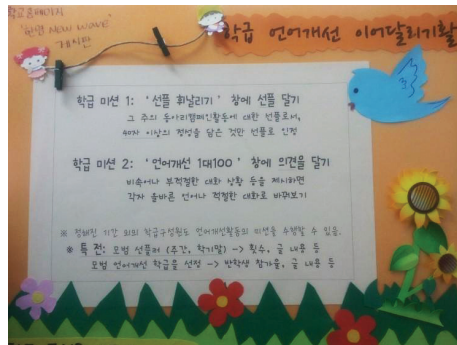 학교홈페이지
'선면 New wave'
게시판
학급 언어개선 이어달리기활
학급 미션 1: '선플 휘날리기' 창에 선플 달기
그 주의 동아리캠페인활동에 대한 선플로서,
40자 이상의 정성을 담은 것만 선플로 인정
학급 미션 2: '언어개선 1대100' 창에 의견을 달기
비속어나 부적절한 대화 상황 등을 제시하면
각자 올바른 언어나 적절한 대화로 바꿔보기
※ 정해진 기간 외의 학급구성원도 언어개선활동의 미션을 수행할 수 있음.
※ 특전: 모범 선플러 (주간, 학기말) -> 횟수, 글 내용 등
모범 언어개선 학급을 선정 -> 반학생 참가율, 글 내용 등